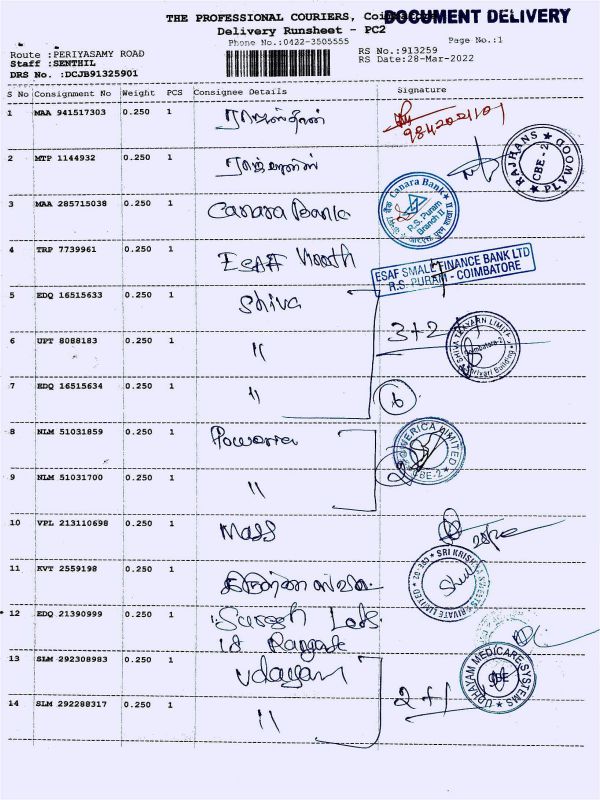 THE PROFESSIONAL COURIERS, DOCUMENT DELIVERY
Delivery Runsheet - PC2
Phone No.:0422-3505555
Page No.:1
Route :PERIYASAMY ROAD
RS No.:913259
Staff :SENTHIL
RS Date:28-Mar-2022
DRS No. :DCJB91325901
S No Consignment No Weight PCS Consignee Details Signature
1 MAA 941517303 0.250 1
9842021101
2 MTP 1144932 0.250 1
RAJHANS PLYWOOD CBE - 2
3 MAA 285715038 0.250 1 Canara Bank
Canara Bank R.S. Puram Branch II
4 TRP 7739961 0.250 1 ESAF
ESAF SMALL FINANCE BANK LTD
R.S. PURAM - COIMBATORE
5 EDQ 16515633 0.250 1 Shiva
6 UPT 8088183 0.250 1 "
3+2
SHIVA TEXYARN LIMITED Coimbatore-2 Shrivari Building
7 EDQ 16515634 0.250 1 "
8 NLM 51031859 0.250 1
LIMITED CBE-2
9 NLM 51031700 0.250 1 "
10 VPL 213110698 0.250 1 Mass
11 KVT 2559198 0.250 1
SRI SWEETS PRIVATE LIMITED CBE-02
12 EDQ 21390999 0.250 1 Suresh
13 SLM 292308983 0.250 1 Udayam
UDHAYAM MEDICARE SYSTEMS CBE
2+1
14 SLM 292288317 0.250 1 "